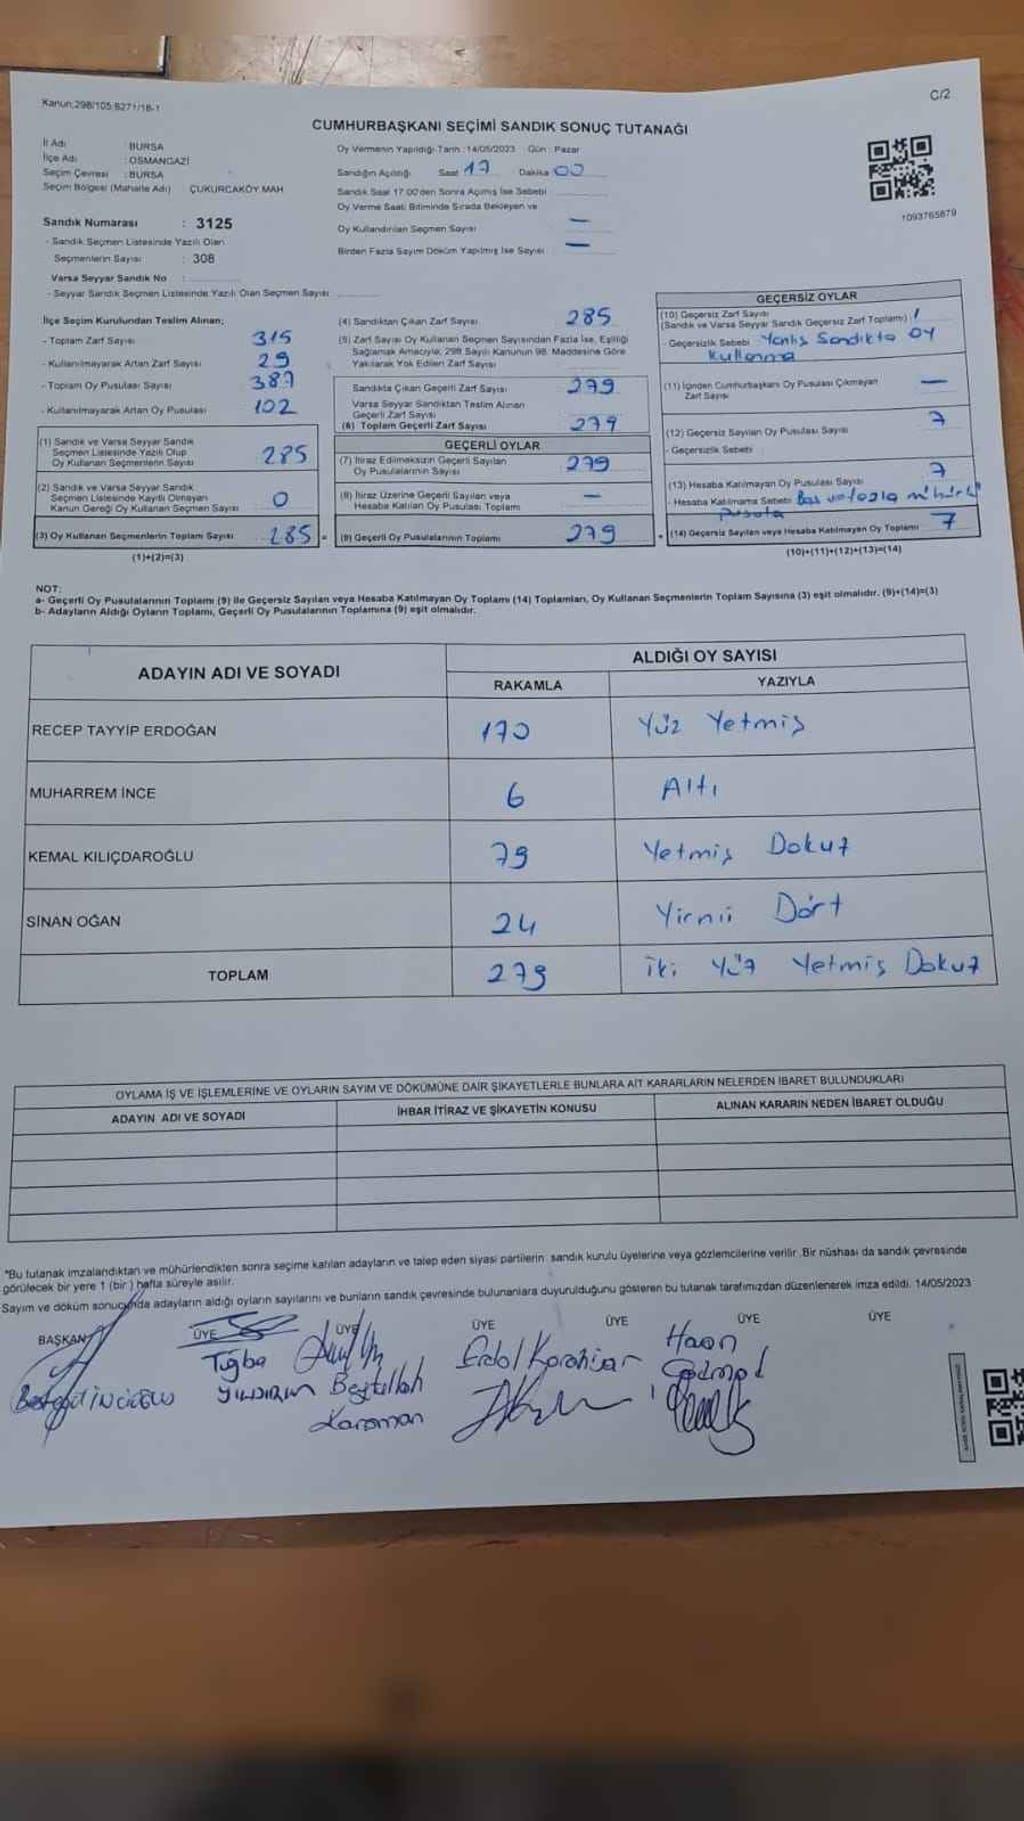 Kanun:298/105 6271/18-1
C/2
CUMHURBAŞKANI SEÇİMİ SANDIK SONUÇ TUTANAĞI
İl Adı : BURSA
İlçe Adı : OSMANGAZİ
Seçim Çevresi : BURSA
Seçim Bölgesi (Mahalle Adı) ÇUKURCAKÖY MAH
Sandık Numarası : 3125
- Sandık Seçmen Listesinde Yazılı Olan
Seçmenlerin Sayısı : 308
Varsa Seyyar Sandık No :
- Seyyar Sandık Seçmen Listesinde Yazılı Olan Seçmen Sayısı
Oy Vermenin Yapıldığı Tarih : 14/05/2023 Gün : Pazar
Sandığın Açıldığı Saat 17 Dakika 00
Sandık Saat 17.00'den Sonra Açılmış İse Sebebi
Oy Verme Saati Bitiminde Sırada Bekleyen ve
Oy Kullandırılan Seçmen Sayısı —
Birden Fazla Sayım Döküm Yapılmış İse Sayısı —
1093765879
İlçe Seçim Kurulundan Teslim Alınan;
- Toplam Zarf Sayısı 315
- Kullanılmayarak Artan Zarf Sayısı 29
- Toplam Oy Pusulası Sayısı 387
- Kullanılmayarak Artan Oy Pusulası 102
(1) Sandık ve Varsa Seyyar Sandık
Seçmen Listesinde Yazılı Olup
Oy Kullanan Seçmenlerin Sayısı 285
(2) Sandık ve Varsa Seyyar Sandık
Seçmen Listesinde Kayıtlı Olmayan
Kanun Gereği Oy Kullanan Seçmen Sayısı 0
(3) Oy Kullanan Seçmenlerin Toplam Sayısı 285 =
(1)+(2)=(3)
(4) Sandıktan Çıkan Zarf Sayısı 285
(5) Zarf Sayısı Oy Kullanan Seçmen Sayısından Fazla İse, Eşitliği
Sağlamak Amacıyla; 298 Sayılı Kanunun 98. Maddesine Göre
Yakılarak Yok Edilen Zarf Sayısı
Sandıkta Çıkan Geçerli Zarf Sayısı 279
Varsa Seyyar Sandıktan Teslim Alınan
Geçerli Zarf Sayısı
(6) Toplam Geçerli Zarf Sayısı 279
GEÇERLİ OYLAR
(7) İtiraz Edilmeksizin Geçerli Sayılan
Oy Pusulalarının Sayısı 279
(8) İtiraz Üzerine Geçerli Sayılan veya
Hesaba Katılan Oy Pusulası Toplamı —
(9) Geçerli Oy Pusulalarının Toplamı 279
GEÇERSİZ OYLAR
(10) Geçersiz Zarf Sayısı
(Sandık ve Varsa Seyyar Sandık Geçersiz Zarf Toplamı) 1
- Geçersizlik Sebebi Yanlış Sandıkta OY
Kullanma
(11) İçinden Cumhurbaşkanı Oy Pusulası Çıkmayan
Zarf Sayısı —
(12) Geçersiz Sayılan Oy Pusulası Sayısı 7
- Geçersizlik Sebebi
(13) Hesaba Katılmayan Oy Pusulası Sayısı 7
- Hesaba Katılmama Sebebi Boş ve fazla mühürlü
pusula
(14) Geçersiz Sayılan veya Hesaba Katılmayan Oy Toplamı 7
(10)+(11)+(12)+(13)=(14)
NOT:
a- Geçerli Oy Pusulalarının Toplamı (9) ile Geçersiz Sayılan veya Hesaba Katılmayan Oy Toplamı (14) Toplamları, Oy Kullanan Seçmenlerin Toplam Sayısına (3) eşit olmalıdır. (9)+(14)=(3)
b- Adayların Aldığı Oyların Toplamı, Geçerli Oy Pusulalarının Toplamına (9) eşit olmalıdır.
ADAYIN ADI VE SOYADI
ALDIĞI OY SAYISI
RAKAMLA YAZIYLA
RECEP TAYYİP ERDOĞAN 170 Yüz Yetmiş
MUHARREM İNCE 6 Altı
KEMAL KILIÇDAROĞLU 79 Yetmiş Dokuz
SİNAN OĞAN 24 Yirmi Dört
TOPLAM 279 İki Yüz Yetmiş Dokuz
OYLAMA İŞ VE İŞLEMLERİNE VE OYLARIN SAYIM VE DÖKÜMÜNE DAİR ŞİKAYETLERLE BUNLARA AİT KARARLARIN NELERDEN İBARET BULUNDUKLARI
ADAYIN ADI VE SOYADI İHBAR İTİRAZ VE ŞİKAYETİN KONUSU ALINAN KARARIN NEDEN İBARET OLDUĞU
*Bu tutanak imzalandıktan ve mühürlendikten sonra seçime katılan adayların ve talep eden siyasi partilerin sandık kurulu üyelerine veya gözlemcilerine verilir. Bir nüshası da sandık çevresinde
görülecek bir yere 1 (bir) hafta süreyle asılır.
Sayım ve döküm sonucunda adayların aldığı oyların sayılarını ve bunların sandık çevresinde bulunanlara duyurulduğunu gösteren bu tutanak tarafımızdan düzenlenerek imza edildi. 14/05/2023
BAŞKAN ÜYE ÜYE ÜYE ÜYE ÜYE ÜYE
Tuğba
YILDIRIM
Beytullah
Karaman
Erdal Karahisar
Hasan